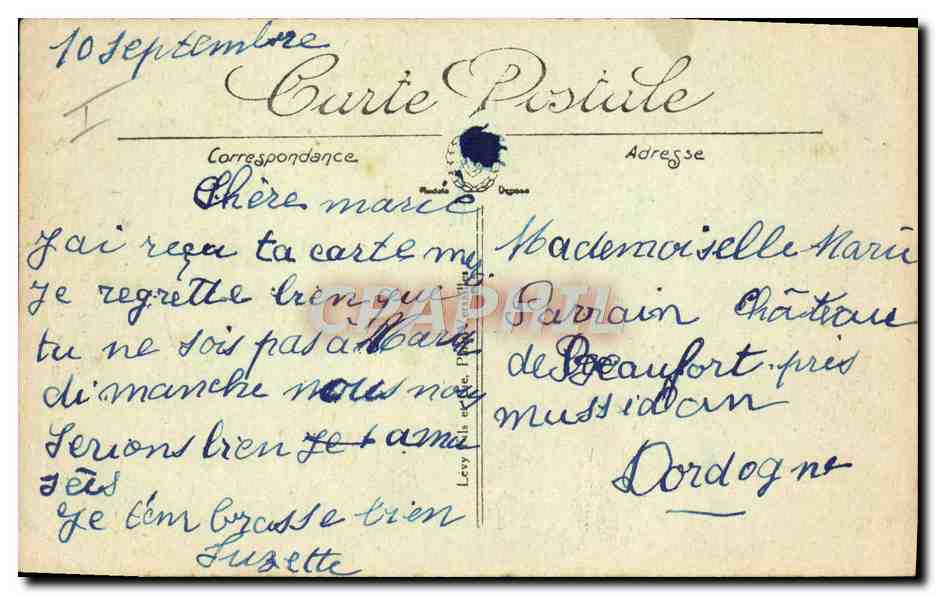 10 septembre
Carte Postale
Correspondance
Adresse
Modèle Déposé
Chère marie
J'ai reçu ta carte
Je regrette bien que
tu ne sois pas à
dimanche nous nous
serions bien amu
sés
Je t'em brasse bien
Suzette
Mademoiselle Marie
Parrain Château
de Beaufort près
mussidan
Dordogne
Lévy Fils et Cie, Paris
CPAPHIL